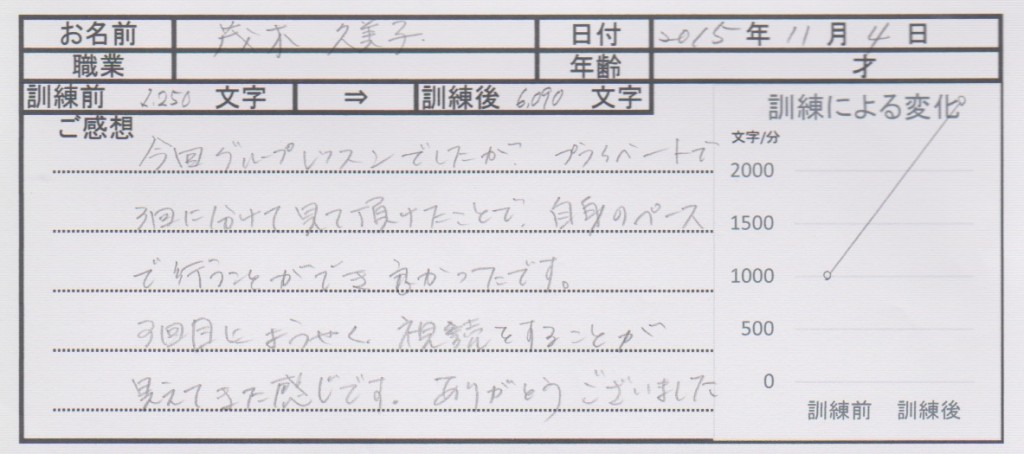 お名前 茂木 久美子 日付 2015年 11月 4日
職業 年齢 才
訓練前 1.250 文字 ⇒ 訓練後 6,090 文字
ご感想
今回グループレッスンでしたが、プライベートで
3回に分けて見て頂けたことで、自身のペース
で行うことができ良かったです。
3回目にようやく、視読をすることが
見えてきた感じです。ありがとうございました
訓練による変化
文字/分
2000
1500
1000
500
0
訓練前 訓練後